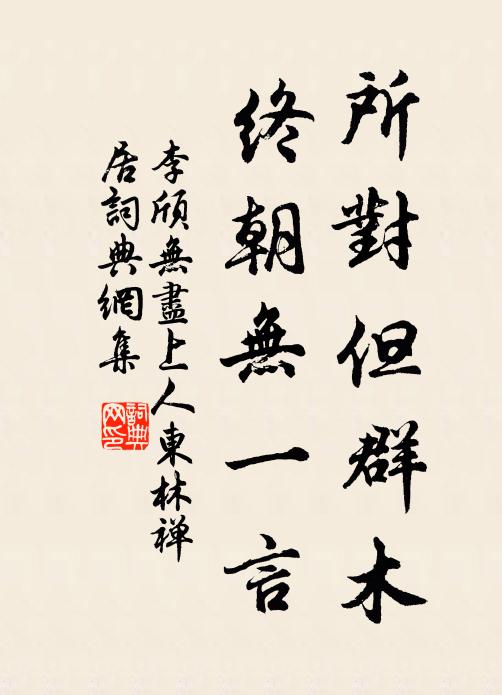 所對但群木
終朝無一言
李頎無盡上人東林禅
居詞典網集
詞典网印